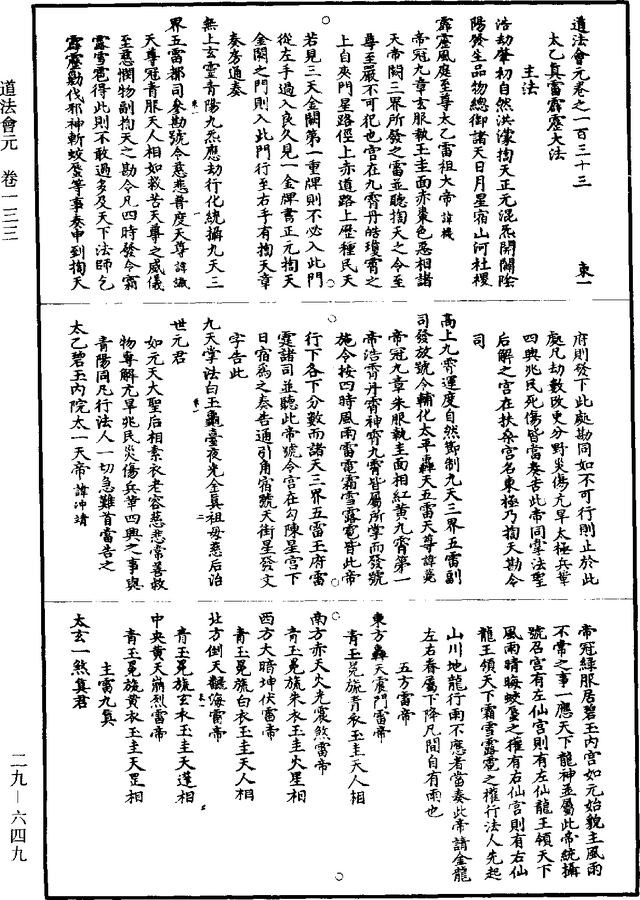 道法會元 卷一三三
二九－六四九
道法會元卷之一百三十三
東一
太乙真雷霹靂大法
主法
浩劫肇初自然洪濛掏天正元混炁開闢陰
陽發生品物總御諸天日月星宿山河社稷
霹靂風庭至尊太乙雷祖大帝
帝冠九章玄服執玉圭面赤棗色惡相諸
天帝闕三界所發之雷並聽掏天之令至
尊至嚴不可犯也宮在九霄丹皓瓊霄之
上自夾門星路徑上亦道路上歷種民天
若見三天金闕第一重牌則不必入此門
從左手過入良久見一金牌書正元掏天
金闕之門則入此門行至右手有掏天章
奏房通奏
無上玄靈青陽九炁應劫行化統攝九天三
界五雷都司參勘號令慈悲普度天尊
天尊冠青服天人相如救苦天尊之威儀
至慈憫物副掏天之勘令凡四時發令霜
露雪雹得此則不敢過多及天下法師乞
霹靂勦伐邪神斬蛟蜃等事奏申到掏天
府則發下此處勘同如不可行則止於此
處凡劫數改更分野災傷亢旱太極兵革
四興兆民死傷皆當奏告此帝同掌法聖
后解之宮在扶桑宮名東極乃掏天勘令
司
高上九霄運度自然御制九天三界五雷副
司發放號令輔化太平轟天五雷天尊
帝冠九章朱服執圭面相紅黃九霄第一
帝浩霄丹霄神霄九霄皆屬所掌而發號
施令按四時風雨雷電霜雪露雹皆此帝
行下各下分數而諸天三界五雷王府雷
霆諸司並聽此帝號令宮在勾陳星宮下
日宿為之奏告通引角宿號天街星發文
字告此
九天掌法白玉龜臺夜光金真祖母慈后治
世元君
如元天大聖后相素衣老容慈悲常善救
物專解亢旱兆民災傷兵革四興之事與
青陽同凡行法人一切急難首當告之
太乙碧玉內院太一天帝 諱冲靖
帝冠緑服居碧玉內宮如元始貌主風雨
不常之事一應天下龍神並屬此帝統攝
號召宮有左仙宮則有左仙龍王領天下
風雨晴晦蛟蜃之權有右仙宮則有右仙
龍王領天下霜雪露雹之權行法人先起
山川地龍行雨不應者當奏此帝請金龍
左右眷屬下降凡間自有雨也
五方雷帝
東方轟天震門雷帝
青玉冕旒青衣玉圭天人相
南方赤天火光震煞雷帝
青玉冕旒朱衣玉圭火星相
西方大暗坤伏雷帝
青玉冕旒白衣玉圭天人相
北方倒天翻海雷帝
青玉冕旒玄衣玉圭天蓬相
中央黃天崩烈雷帝
青玉冕旒黃衣玉圭天罡相
主雷九真
太玄一煞真君